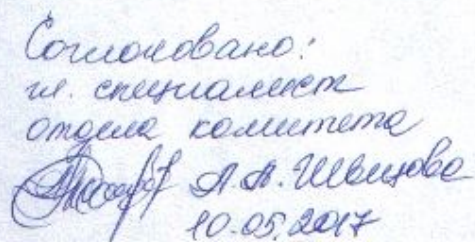 Согласовано:
гл. специалист
отдела комитета
А.А. Швецова
10.05.2017